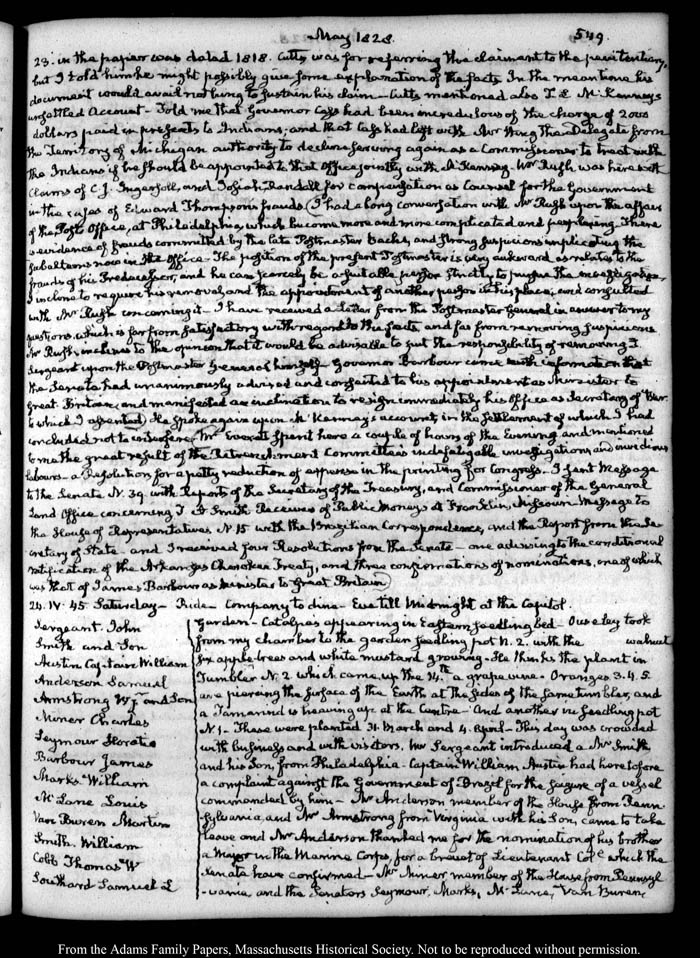 May 1828.
549
23. in the papers was dated 1818. Cutts was for referring the claimant to the penitentiary,
but I told him he might possibly give some explanation of the facts. In the meantime his
document would avail nothing to sustain his claim — Cutts mentioned also T. L. McKenney's
unsettled Account — Told me that Governor Cass had been incredulous of the charge of 2000
dollars paid in presents to Indians; and that Cass had left with Mr Wing the Delegate from
the Territory of Michigan authority to decline serving again as a Commissioner to treat with
the Indians if he should be appointed to that Office jointly with McKenney. Mr Rush was here with
Claims of C. J. Ingersoll, and Josiah Randall for compensation as Counsel for the Government
in the cases of Edward Thompson's frauds (I had a long conversation with Mr Rush upon the affairs
of the Post Office, at Philadelphia, which become more and more complicated and perplexing. There
is evidence of frauds committed by the late Postmaster Bache, and strong suspicions implicating the
subalterns now in the Office. The position of the present Postmaster is very awkward as relates to the
frauds of his Predecessor, and he can scarcely be a suitable person strictly to pursue the investigation.
I incline to require his removal, and the appointment of another person in his place, and consulted
with Mr Rush concerning it. I have received a Letter from the Postmaster General in answer to my
questions, which is far from satisfactory with regard to the facts, and far from removing suspicions
Mr Rush inclines to the opinion that it would be advisable to put the responsibility of removing T.
Sergeant upon the Postmaster General himself. Governor Barbour came with information that
the Senate had unanimously advised and consented to his appointment as Minister to
Great Britain, and manifested an inclination to resign immediately his Office as Secretary of War.
to which I assented) He spoke again upon McKenney's account, in the settlement of which I had
concluded not to interfere. Mr Everett spent here a couple of hours of the Evening and mentioned
to me the great result of the Retrenchment Committee's indefatigable investigations, and invidious
labours — a Resolution for a petty reduction of expense in the printing for Congress. I sent Message
to the Senate N. 39 with Reports of the Secretary of the Treasury, and Commissioner of the General
Land Office concerning T. A Smith Receiver of Public Moneys at Franklin, Missouri — Message to
the House of Representatives N. 15 with the Brazilian Correspondence, and the Report from the Se-
cretary of State — and I received four Resolutions from the Senate — one advising the conditional
ratification of the Arkansas Cherokee Treaty, and three confirmations of nominations, one of which
was that of James Barbour as Minister to Great Britain)
24. IV. 45 Saturday — Ride — Company to dine — Eve till Midnight at the Capitol.
Sergeant John
Smith and Son
Austin Captain William
Anderson Samuel
Armstrong Wm and Son
Miner Charles
Seymour Horatio
Barbour James
Marks William
McLane Louis
Van Buren Martin
Smith William
Cobb Thomas W
Southard Samuel L
Garden — Catalpas appearing in Eastern seedling bed — Ouseley took
from my chamber to the garden seedling pot N. 2. with the walnut
six apple-trees and white mustard growing. He thinks the plant in
Tumbler N. 2 which came up the 14th a grape vine. Oranges 3. 4. 5.
are piercing the surface of the Earth at the sides of the same tumbler, and
a Tamarind is heaving up at the Centre — And another in seedling pot
N. 1 — These were planted 31. March and 4. April — This day was crowded
with business and with visitors. Mr Sergeant introduced a Mr Smith
and his Son, from Philadelphia. Captain William Austin had heretofore
a complaint against the Government of Brazil for the seizure of a vessel
commanded by him — Mr Anderson member of the House from Penn-
sylvania, and Mr Armstrong from Virginia with his Son, came to take
leave and Mr Anderson thanked me for the nomination of his brother
a Major in the Marine Corps, for a brevet of Lieutenant Col. which the
Senate have confirmed — Mr Miner member of the House from Pennsyl
-vania and the Senators Seymour, Marks, McLane, Van Buren,
From the Adams Family Papers, Massachusetts Historical Society. Not to be reproduced without permission.